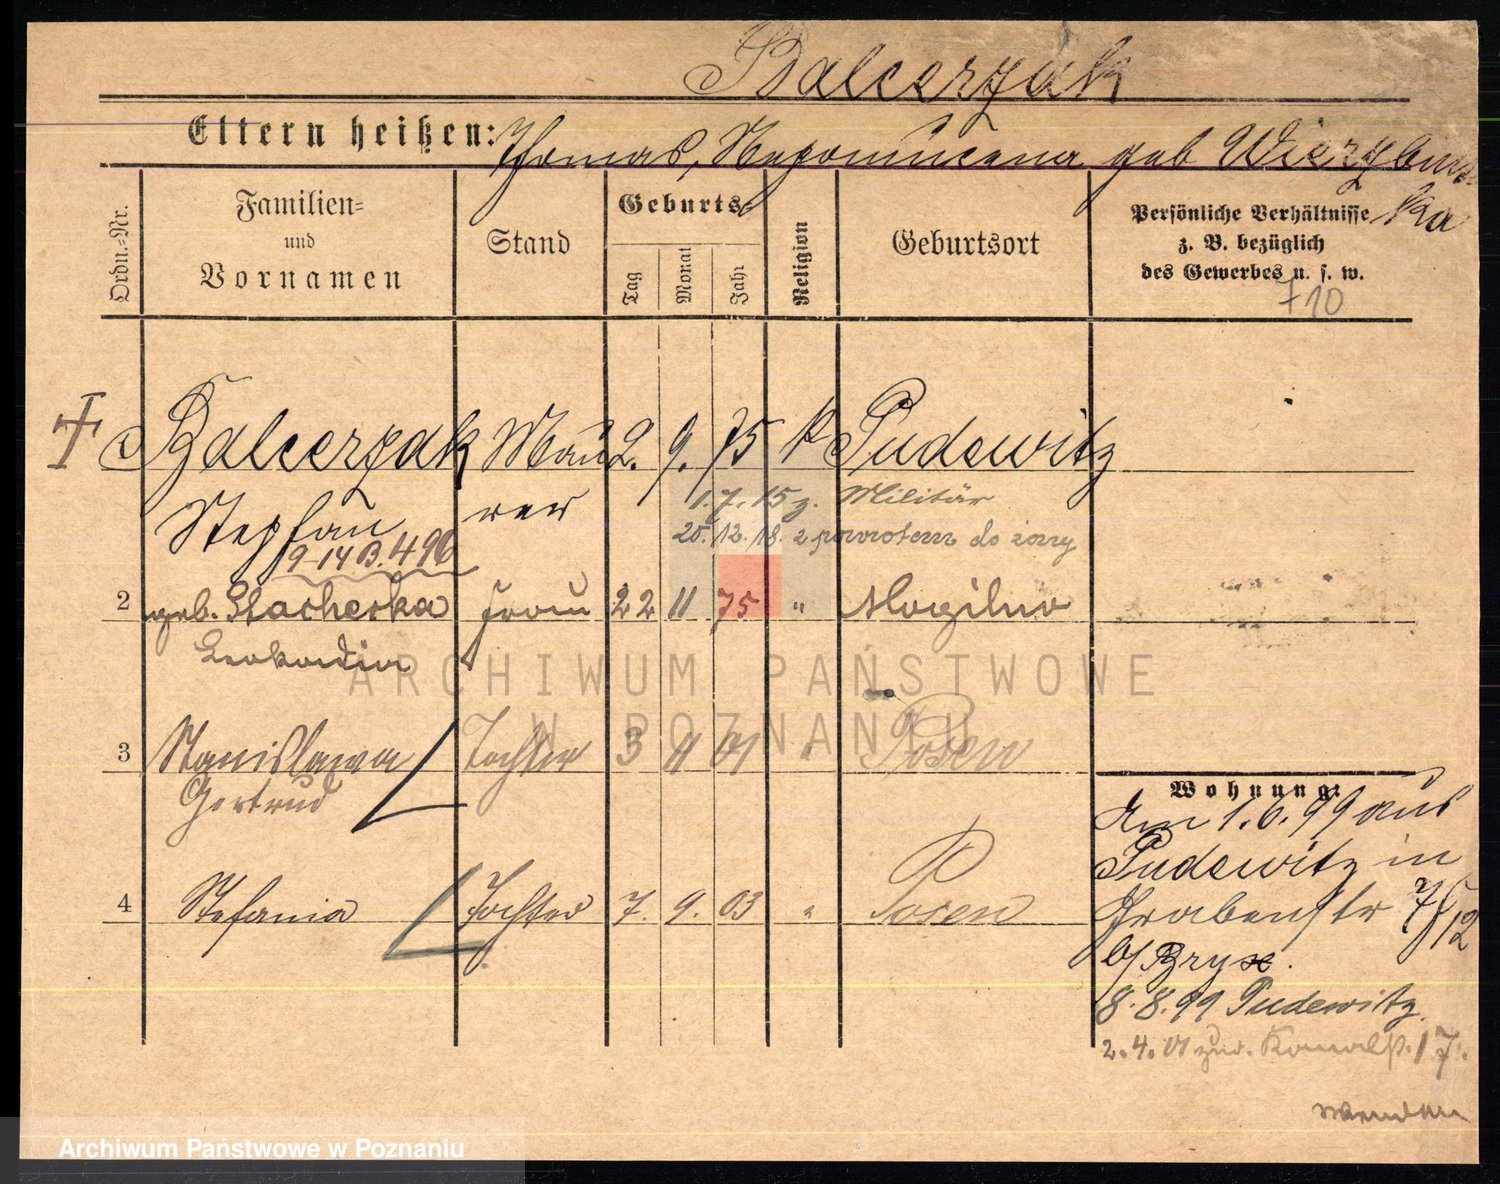 Balcerzak
Eltern heißen: Thomas, Nepomucena geb Wierzbins
ka
Ordn.=Nr.
Familien=
und
Vornamen
Stand
Geburts
Tag
Monat
Jahr
Religion
Geburtsort
Persönliche Verhältnisse
z. B. bezüglich
des Gewerbes u. s. w.
710
Balcerzak Mau 2. 9. 75 k Pudewitz
1.7.15 z. Militär
Stephan rer
20.12.18. z powrotem do żony
9-14 B. 496
2 geb. Stacherka Frau 22 11 75 " Mogilno
Leokadia
ARCHIWUM PAŃSTWOWE
W POZNANIU
3 Stanislawa Tochter 3 11 01 " Posen
Gertrud
Wohnung:
Am 1.6.99 aus
Pudewitz in
4 Stefania Tochter 7. 9. 03 " Posen
Grabenstr
12
b/ Bryx.
8.8.99 Pudewitz.
2.4.01 zur. 17.
wenden
Archiwum Państwowe w Poznaniu